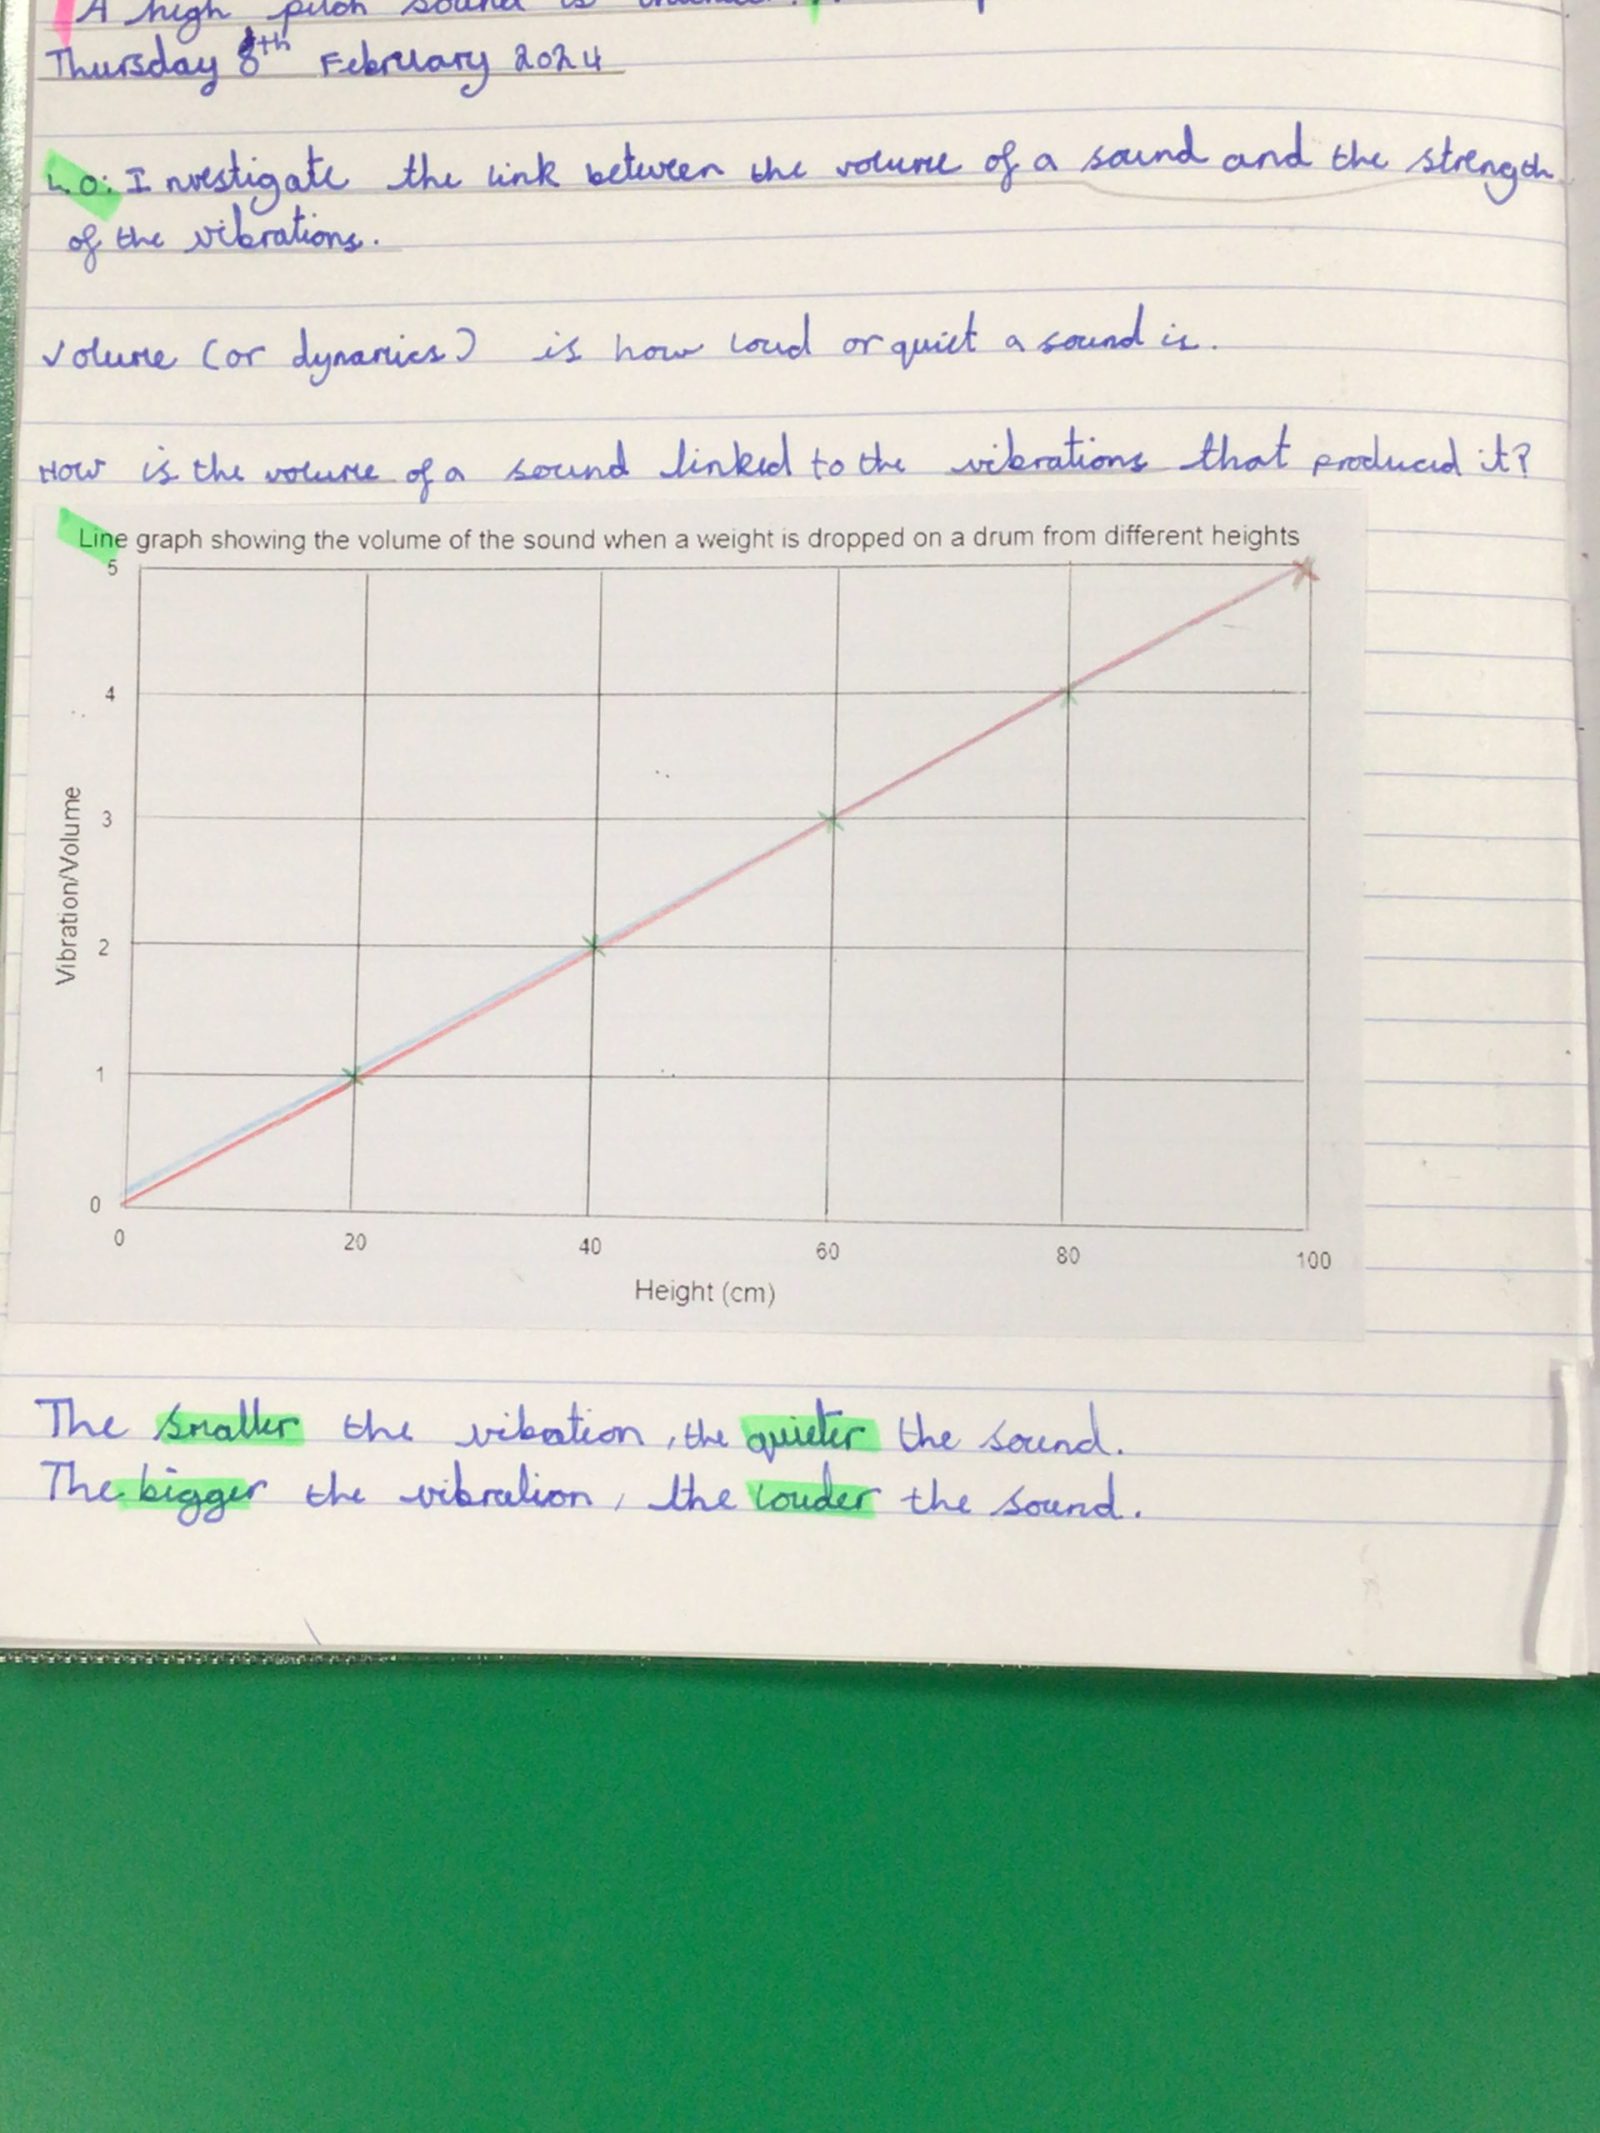 A high pitch sound is
Thursday 8th February 2024
L.O: Investigate the link between the volume of a sound and the strength
of the vibrations.
Volume (or dynamics) is how loud or quiet a sound is.
How is the volume of a sound linked to the vibrations that produced it?
Line graph showing the volume of the sound when a weight is dropped on a drum from different heights
5
4
3
2
1
0
Vibration/Volume
0 20 40 60 80 100
Height (cm)
The smaller the vibration, the quieter the sound.
The bigger the vibration, the louder the sound.